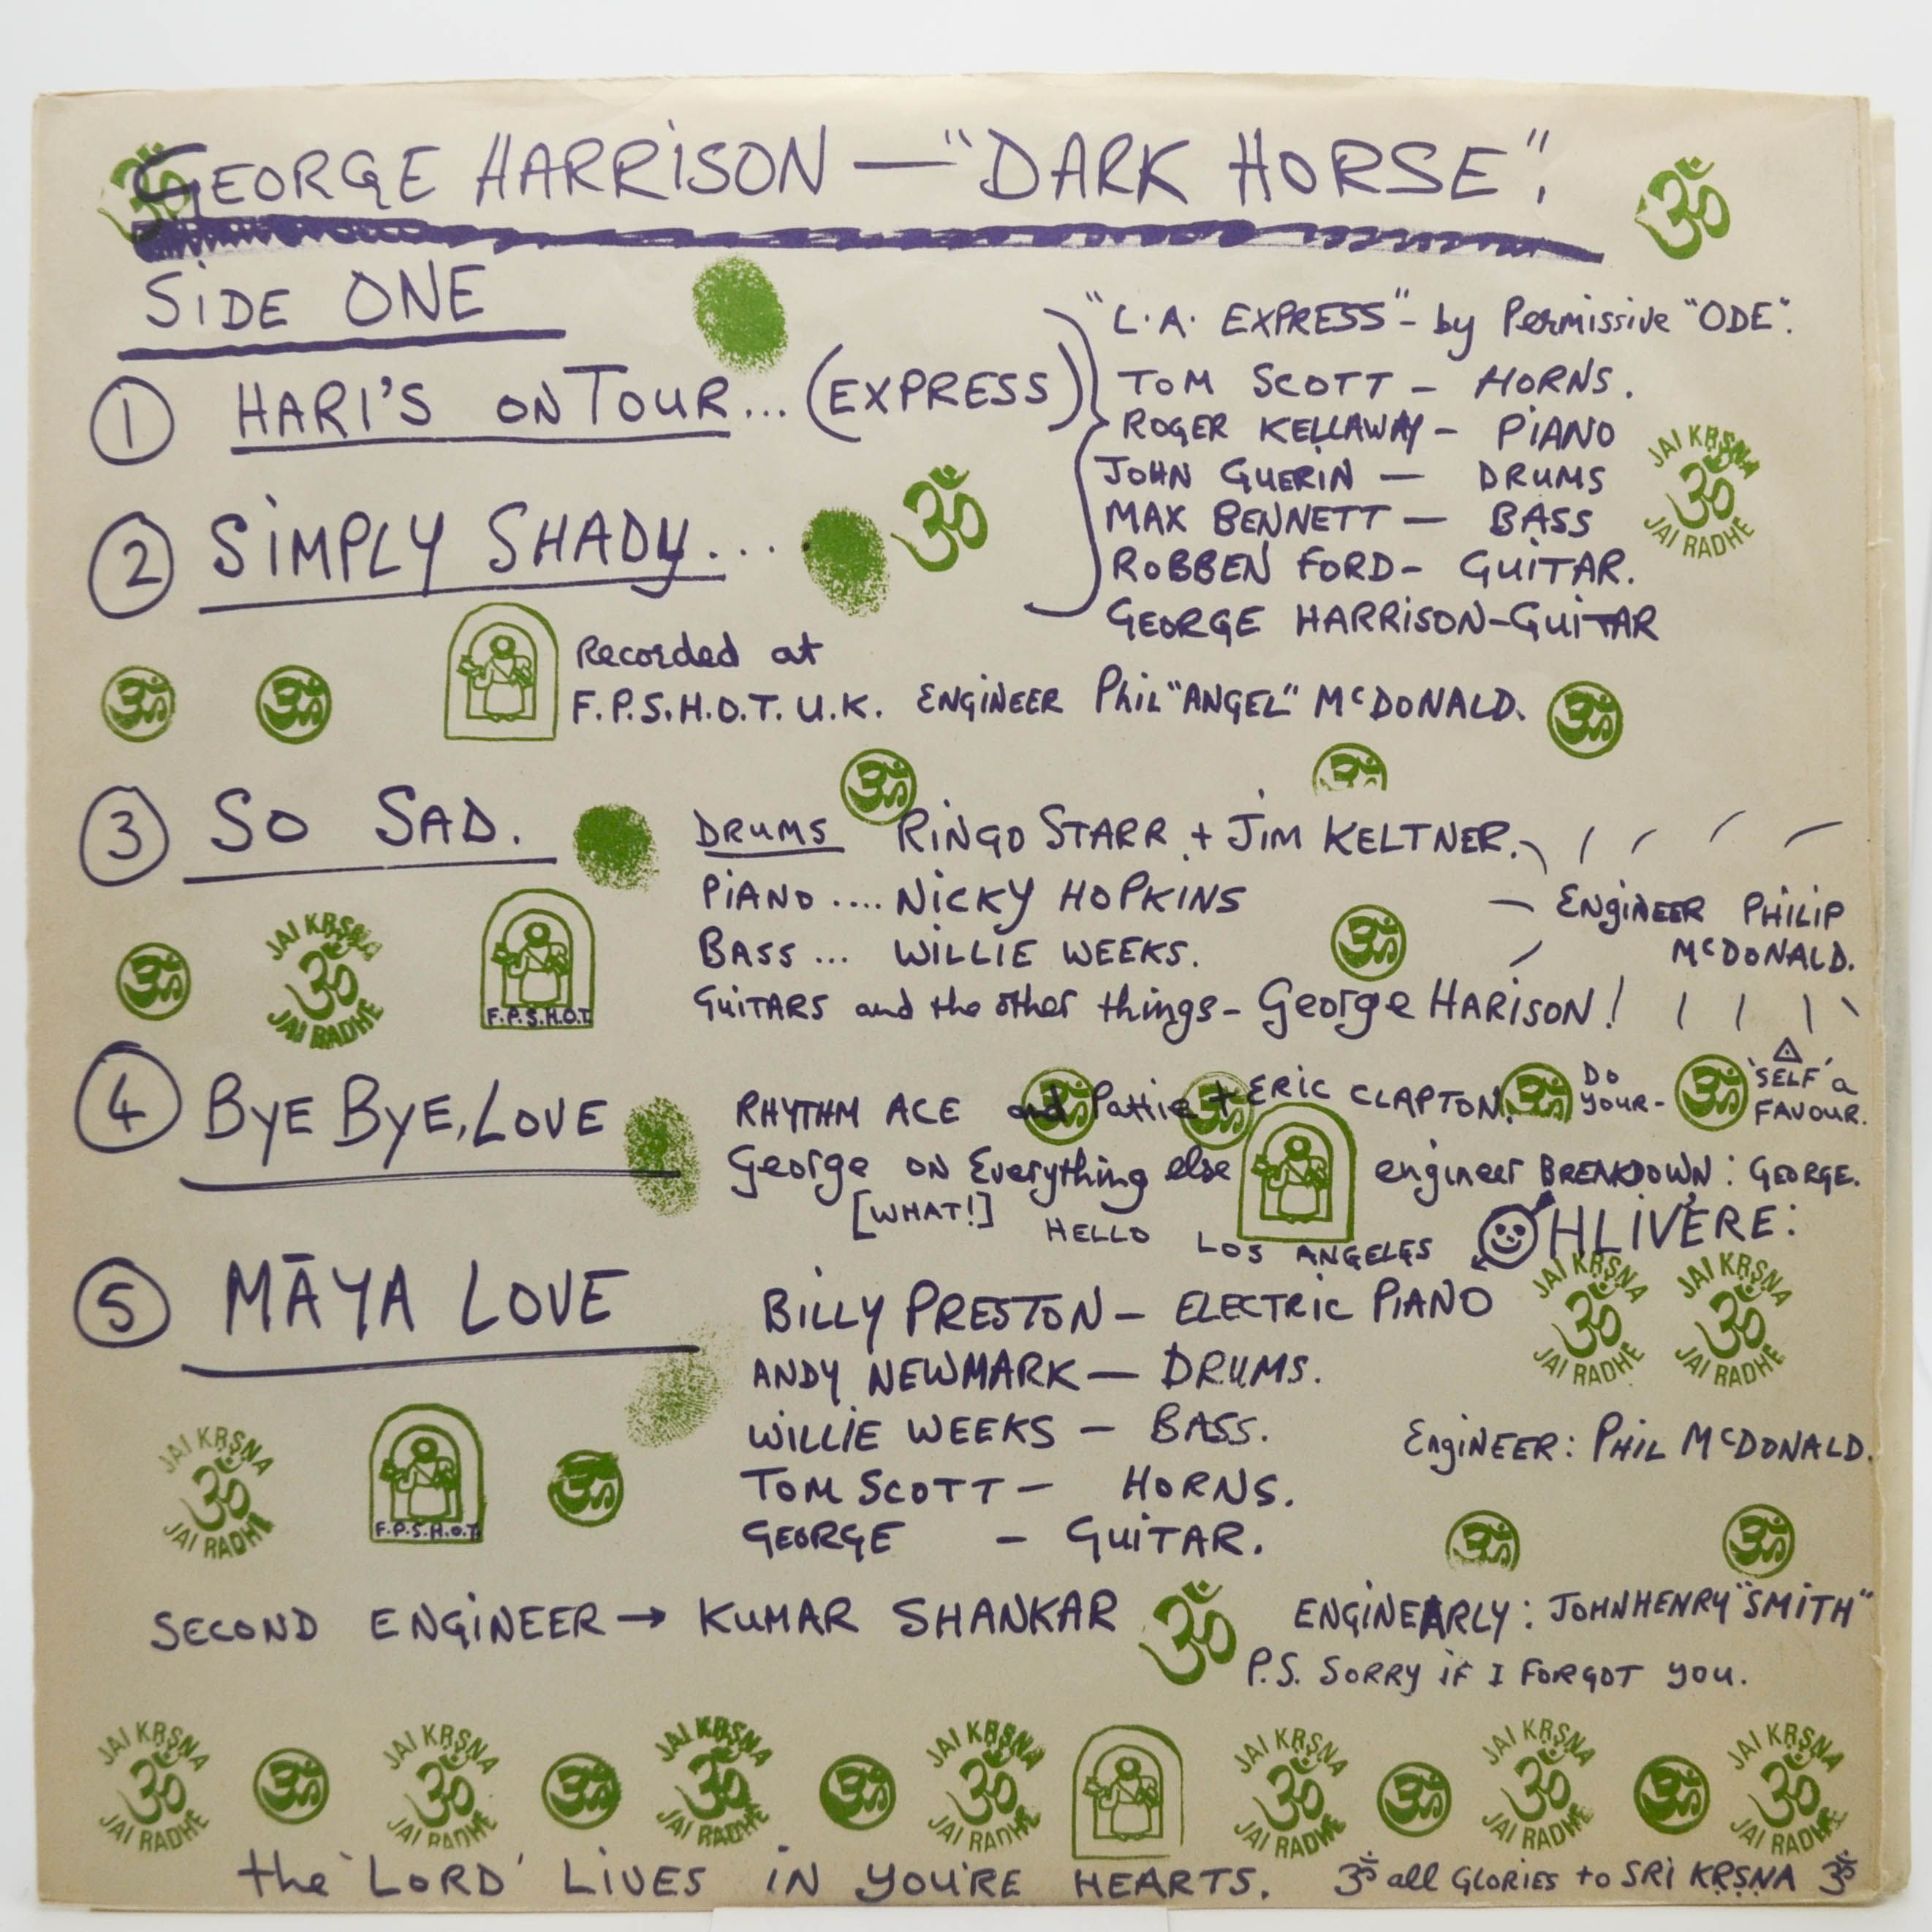 GEORGE HARRISON — "DARK HORSE".
SIDE ONE
"L.A. EXPRESS" - by Permissive "ODE".
① HARI'S ON TOUR... (EXPRESS)
TOM SCOTT - HORNS.
ROGER KELLAWAY - PIANO
JOHN GUERIN — DRUMS
MAX BENNETT — BASS
ROBBEN FORD - GUITAR.
GEORGE HARRISON - GUITAR
JAI KRṢNA
ॐ
JAI RADHE
② SIMPLY SHADY...
Recorded at
F.P.S.H.O.T. U.K. ENGINEER Phil "ANGEL" McDONALD.
③ SO SAD.
DRUMS RINGO STARR + JIM KELTNER.
PIANO .... NICKY HOPKINS
BASS ... WILLIE WEEKS.
GUITARS and the other things - George HARISON!
ENGINEER PHILIP
McDONALD.
JAI KRṢNA
ॐ
JAI RADHE
F.P.S.H.O.T.
④ BYE BYE, LOVE
RHYTHM ACE and Pattie + ERIC CLAPTON.
DO YOUR-
'SELF' a
FAVOUR.
George ON Everything else
engineer BREAKDOWN: GEORGE.
[WHAT!]
HELLO LOS ANGELES
OHLIVERE:
⑤ MĀYA LOVE
BILLY PRESTON — ELECTRIC PIANO
ANDY NEWMARK — DRUMS.
WILLIE WEEKS - BASS.
TOM SCOTT - HORNS.
GEORGE - GUITAR.
JAI KRṢNA
ॐ
JAI RADHE
JAI KRṢNA
ॐ
JAI RADHE
ENGINEER: PHIL McDONALD.
JAI KRṢNA
ॐ
JAI RADHE
F.P.S.H.O.T.
SECOND ENGINEER → KUMAR SHANKAR
ॐ
ENGINEARLY: JOHN HENRY "SMITH"
P.S. SORRY IF I FORGOT YOU.
JAI KRṢNA ॐ JAI RADHE
ॐ
JAI KRṢNA ॐ JAI RADHE
ॐ
JAI KRṢNA ॐ JAI RADHE
ॐ
JAI KRṢNA ॐ JAI RADHE
JAI KRṢNA ॐ JAI RADHE
ॐ
JAI KRṢNA ॐ JAI RADHE
ॐ
JAI KRṢNA ॐ JAI RADHE
the 'LORD' LIVES IN YOU'RE HEARTS. ॐ all GLORIES to SRI KRṢNA ॐ